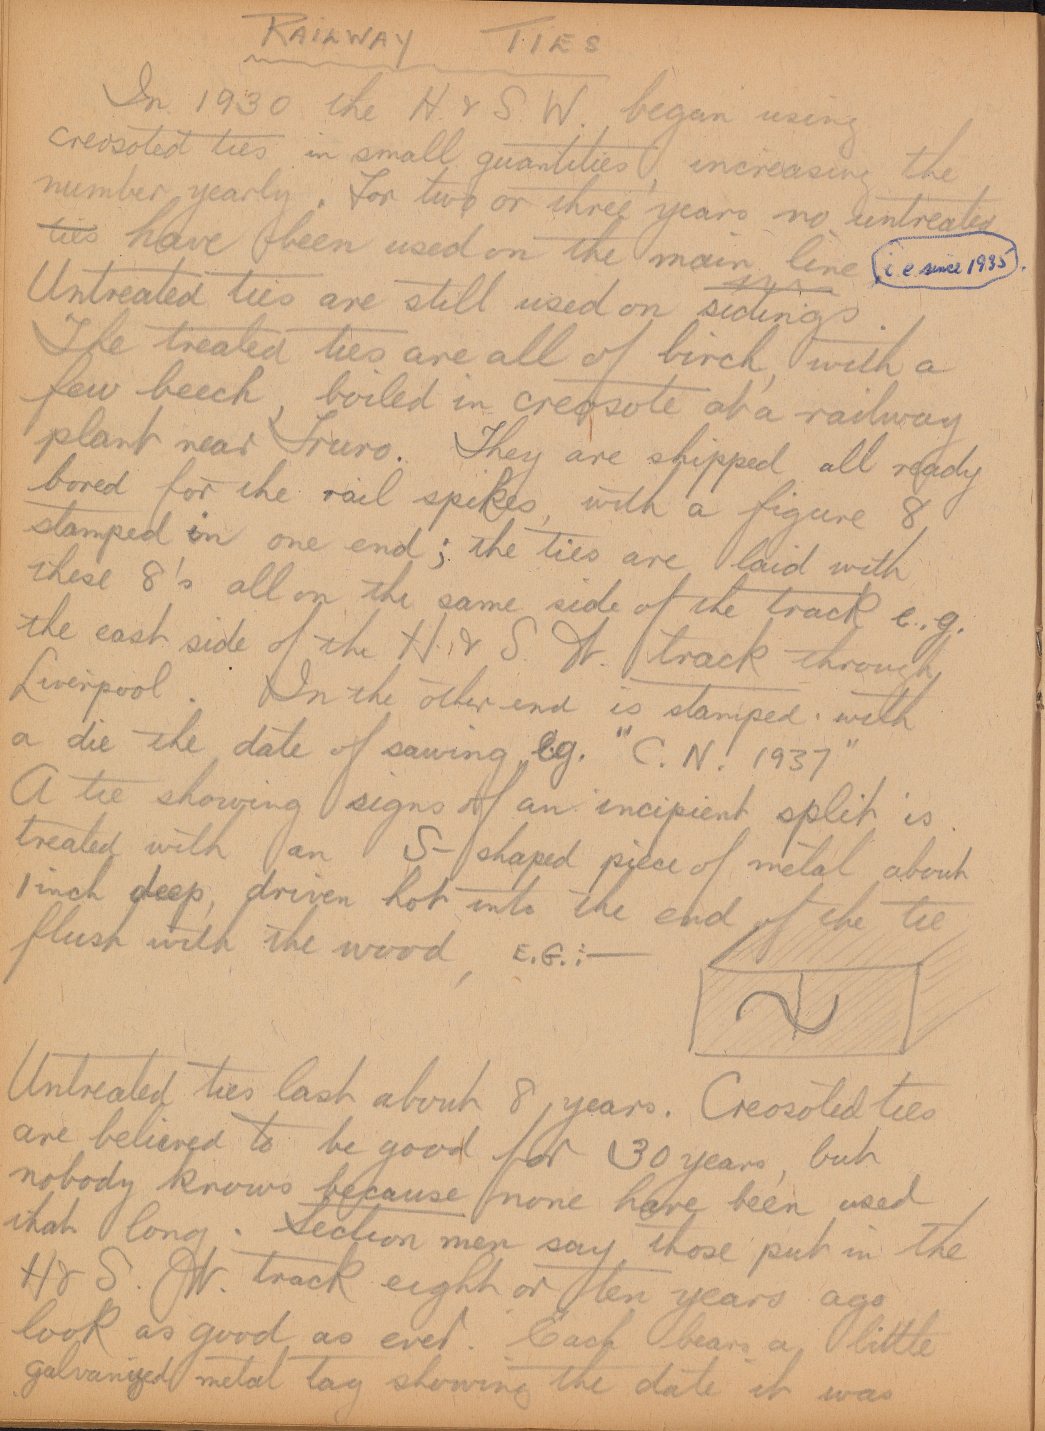 RAILWAY TIES
In 1930 the H. & S. W. began using
creosoted ties in small quantities, increasing the
number yearly. For two or three years no untreated
ties have been used on the main line (i.e since 1935).
Untreated ties are still used on sidings.
The treated ties are all of birch, with a
few beech, boiled in creosote at a railway
plant near Truro. They are shipped all ready
bored for the rail spikes, with a figure 8
stamped in one end; the ties are laid with
these 8's all on the same side of the track e.g.
the east side of the H. & S. W. track through
Liverpool. In the other end is stamped with
a die the date of sawing e.g. "C. N. 1937"
A tie showing signs of an incipient split is
treated with an S-shaped piece of metal about
1 inch deep, driven hot into the end of the tie
flush with the wood, E.G.:—
Untreated ties last about 8 years. Creosoted ties
are believed to be good for 30 years, but
nobody knows because none have been used
that long. Section men say those put in the
H & S. W. track eight or ten years ago
look as good as ever. Each bears a little
galvanized metal tag showing the date it was